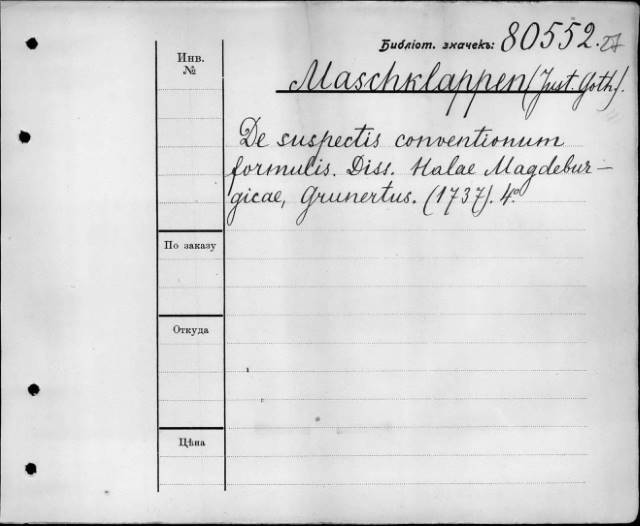 Библіот. значекъ: 80552.
Инв.
№
Maschklappen (Just. Goth.).
De suspectis conventionum
formulis. Diss. Halae Magdebur-
gicae, Grunertus. (1737). 4º
По заказу
Откуда
Цѣна